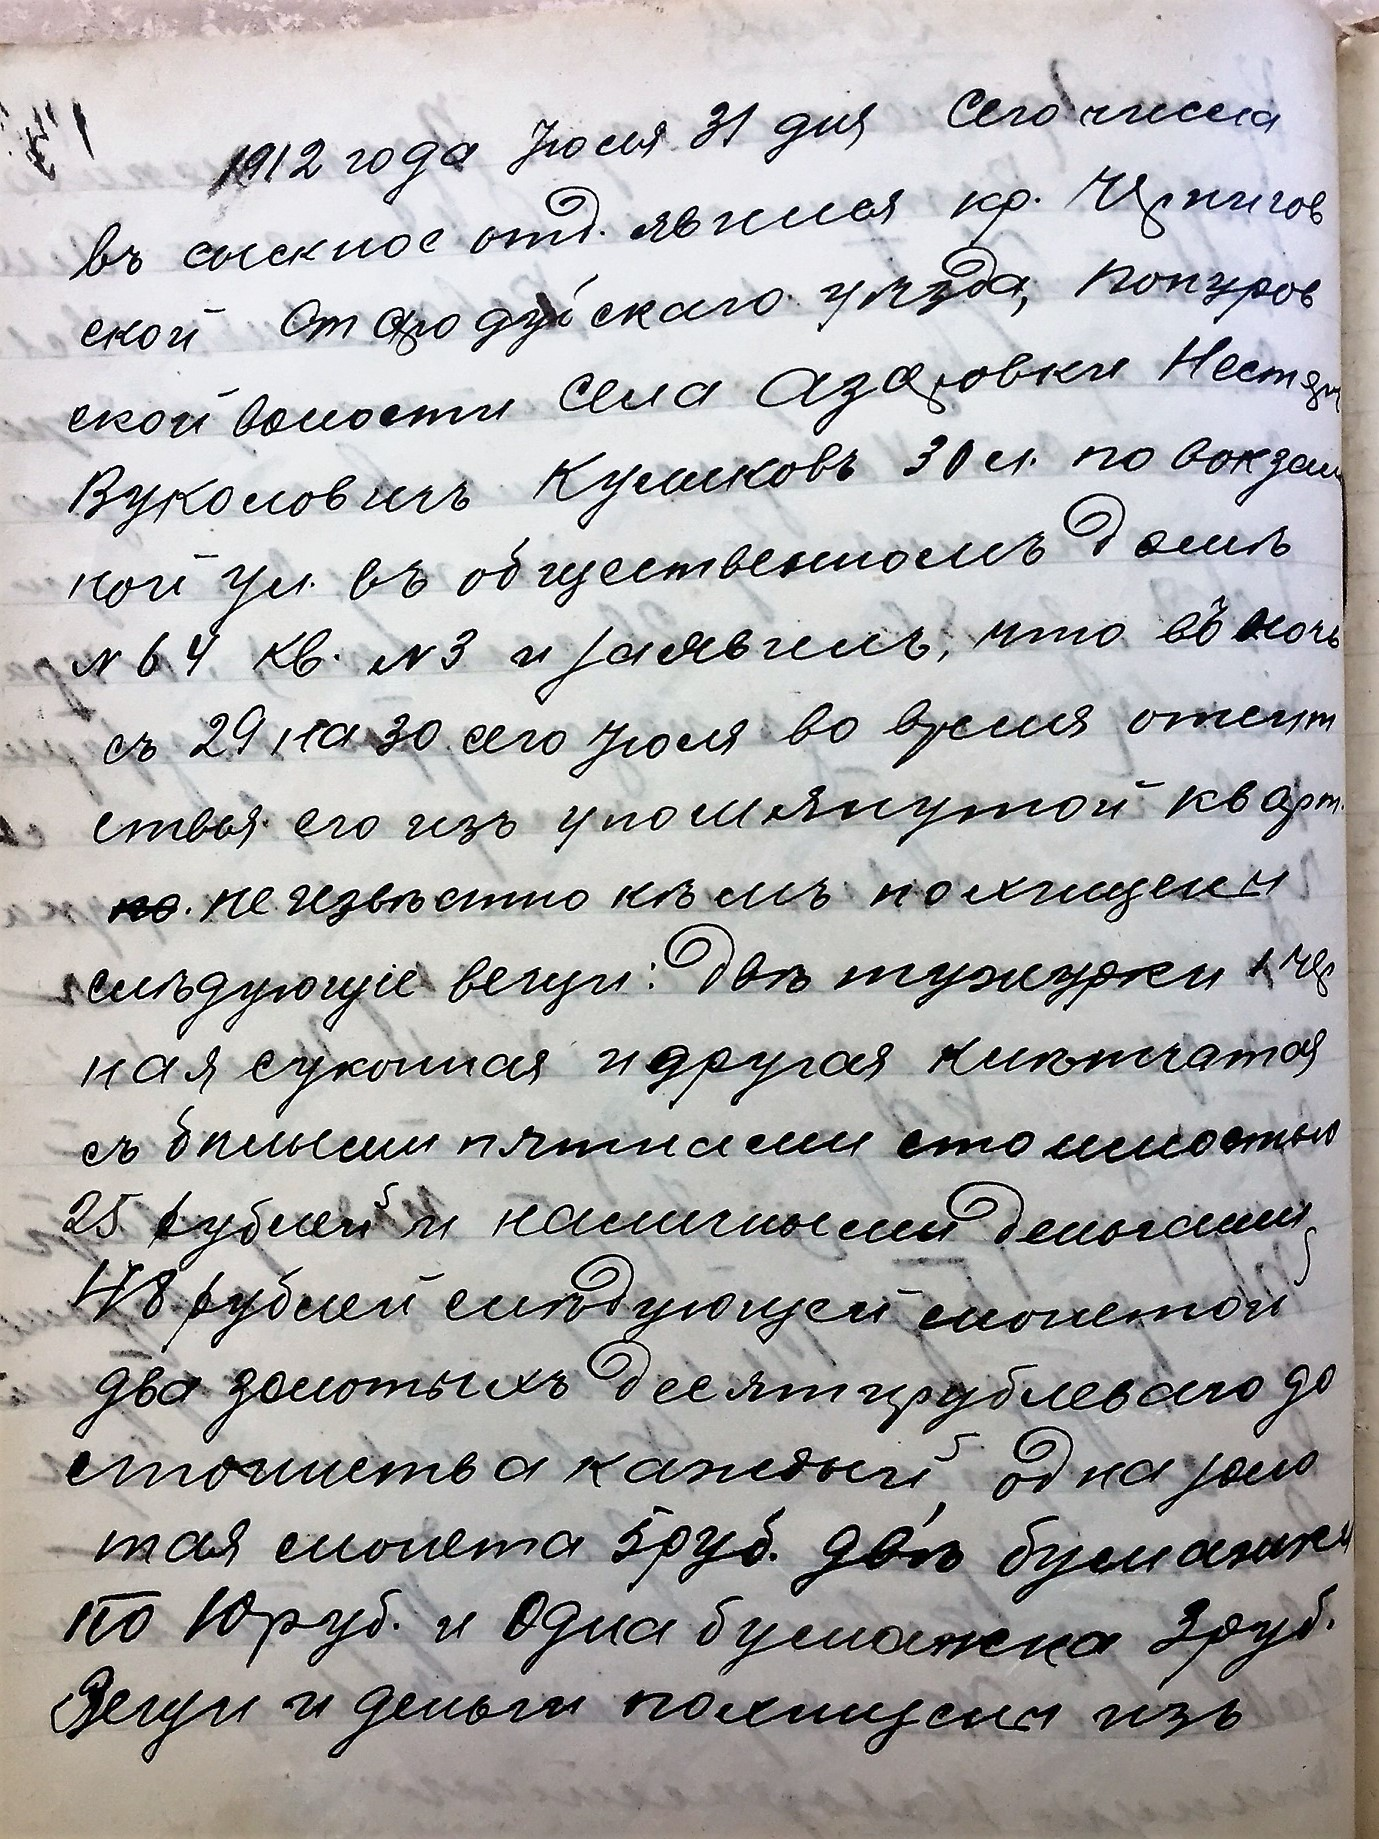 1912 года Июля 31 дня Сего числа
въ сыскное отд. явился кр. Чернигов
ской Стародубскаго уѣзда, Понуров
ской волости села Азаровки Нестер
Вуколовичъ Куликовъ 30 л. по вокзаль
ной ул. въ общественномъ домѣ
№ 64 кв. № 3 и заявилъ, что въ ночь
съ 29 на 30 сего Июля во время отсут
ствья его изъ упомянутой кварт.
неизвѣстно кѣмъ похищены
слѣдующіе вещи: двѣ тужурки 1 чер
ная суконная и другая клѣтчатая
съ бѣлыми пятнами стоимостью
25 рублей и наличными деньгами
48 рублей слѣдующей монетой
два золотыхъ десятирублеваго до
стоинства каждый, одна золо
тая монета 5 руб. двѣ бумажки
по 10 руб. и одна бумажка 3 руб.
Вещи и деньги похищены изъ